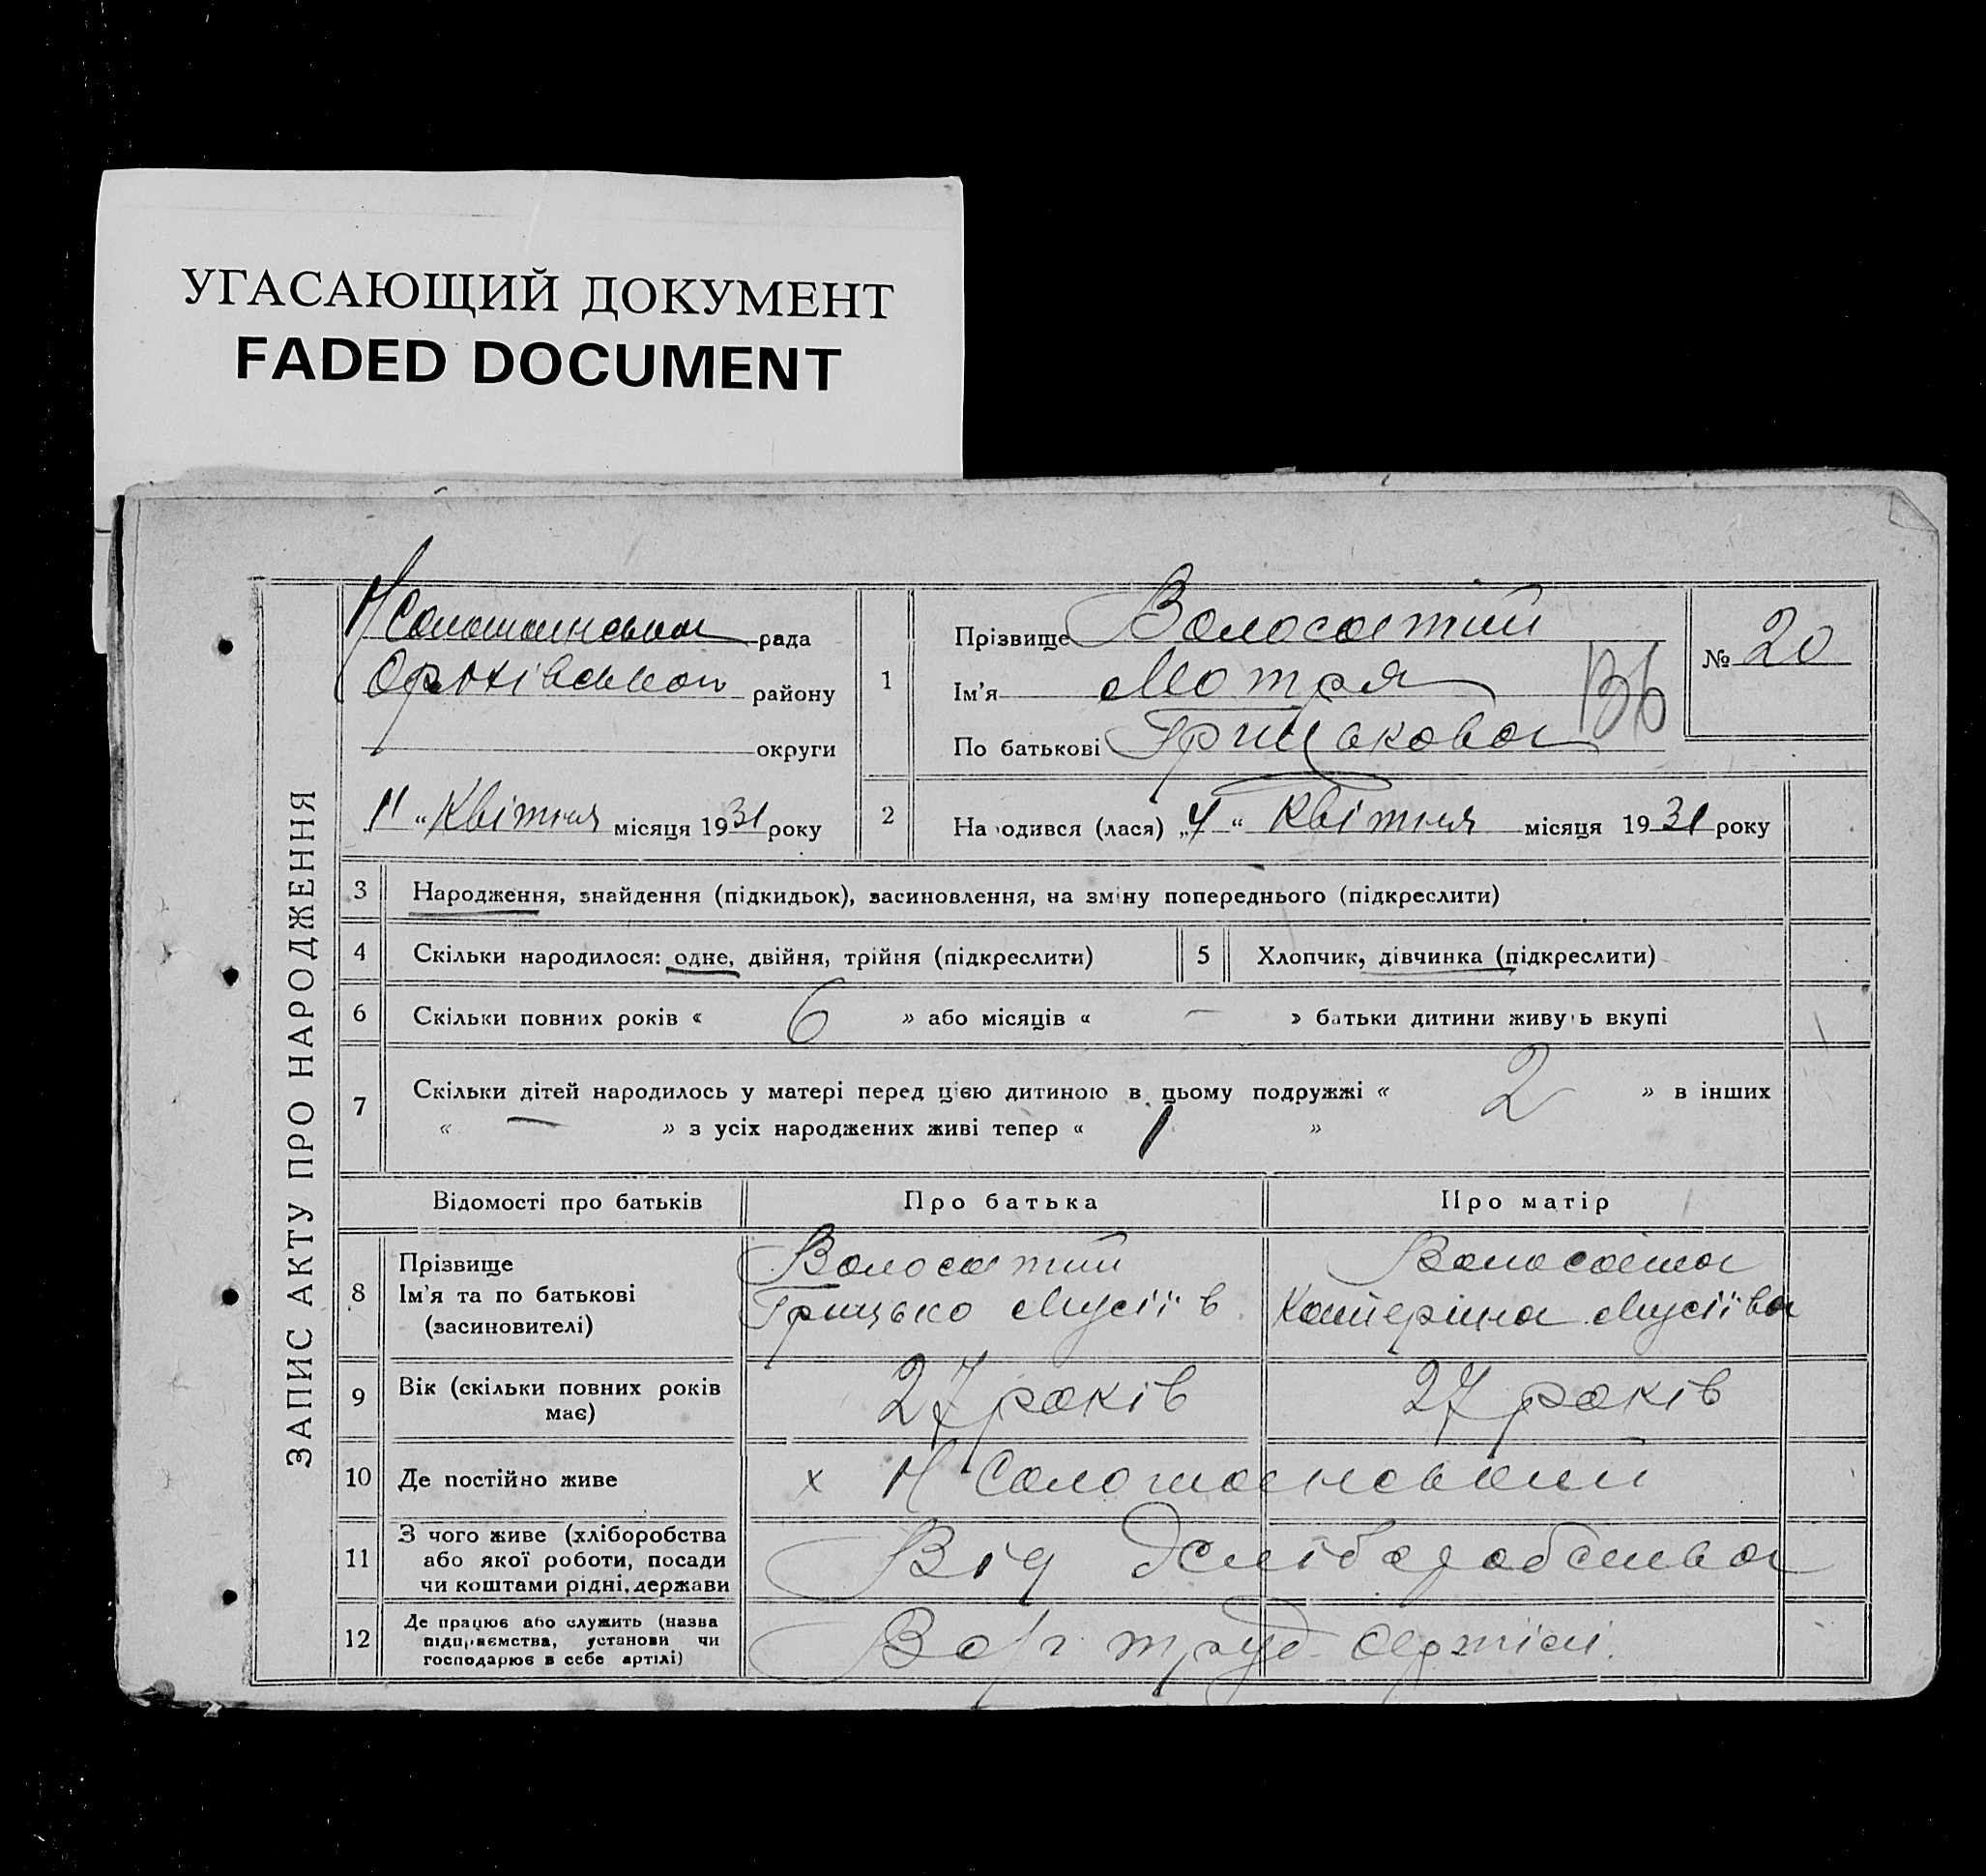 УГАСАЮЩИЙ ДОКУМЕНТ
FADED DOCUMENT
ЗАПИС АКТУ ПРО НАРОДЖЕННЯ
рада
району
округи
11 " Квітня місяця 1931 року
1
Прізвище Волосатий
Ім'я Мотря
По батькові Грицькова
№ 20
2
Народився (лася) „4 " Квітня місяця 1931 року
3 Народження, знайдення (підкидьок), засиновлення, на зміну попереднього (підкреслити)
4 Скільки народилося: одне, двійня, трійня (підкреслити)
5 Хлопчик, дівчинка (підкреслити)
6 Скільки повних років « 6 » або місяців « — » батьки дитини живуть вкупі
7 Скільки дітей народилось у матері перед цією дитиною в цьому подружжі « 2 » в інших
« — » з усіх народжених живі тепер « 1 »
Відомості про батьків Про батька Про матір
8 Прізвище
Ім'я та по батькові
(засиновителі)
Волосатий
Грицько Мусіїв
Волосата
Катерина Мусіївна
9 Вік (скільки повних років
має)
27 років 27 років
10 Де постійно живе х Н Солошанський
11 З чого живе (хліборобства
або якої роботи, посади
чи коштами рідні, держави
Від хліборобства
12 Де працює або служить (назва
підприємства, установи чи
господарює в себе артілі)
труд артілі.